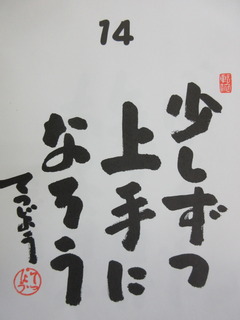 14
少しずつ
上手に
なろう
てつじょう